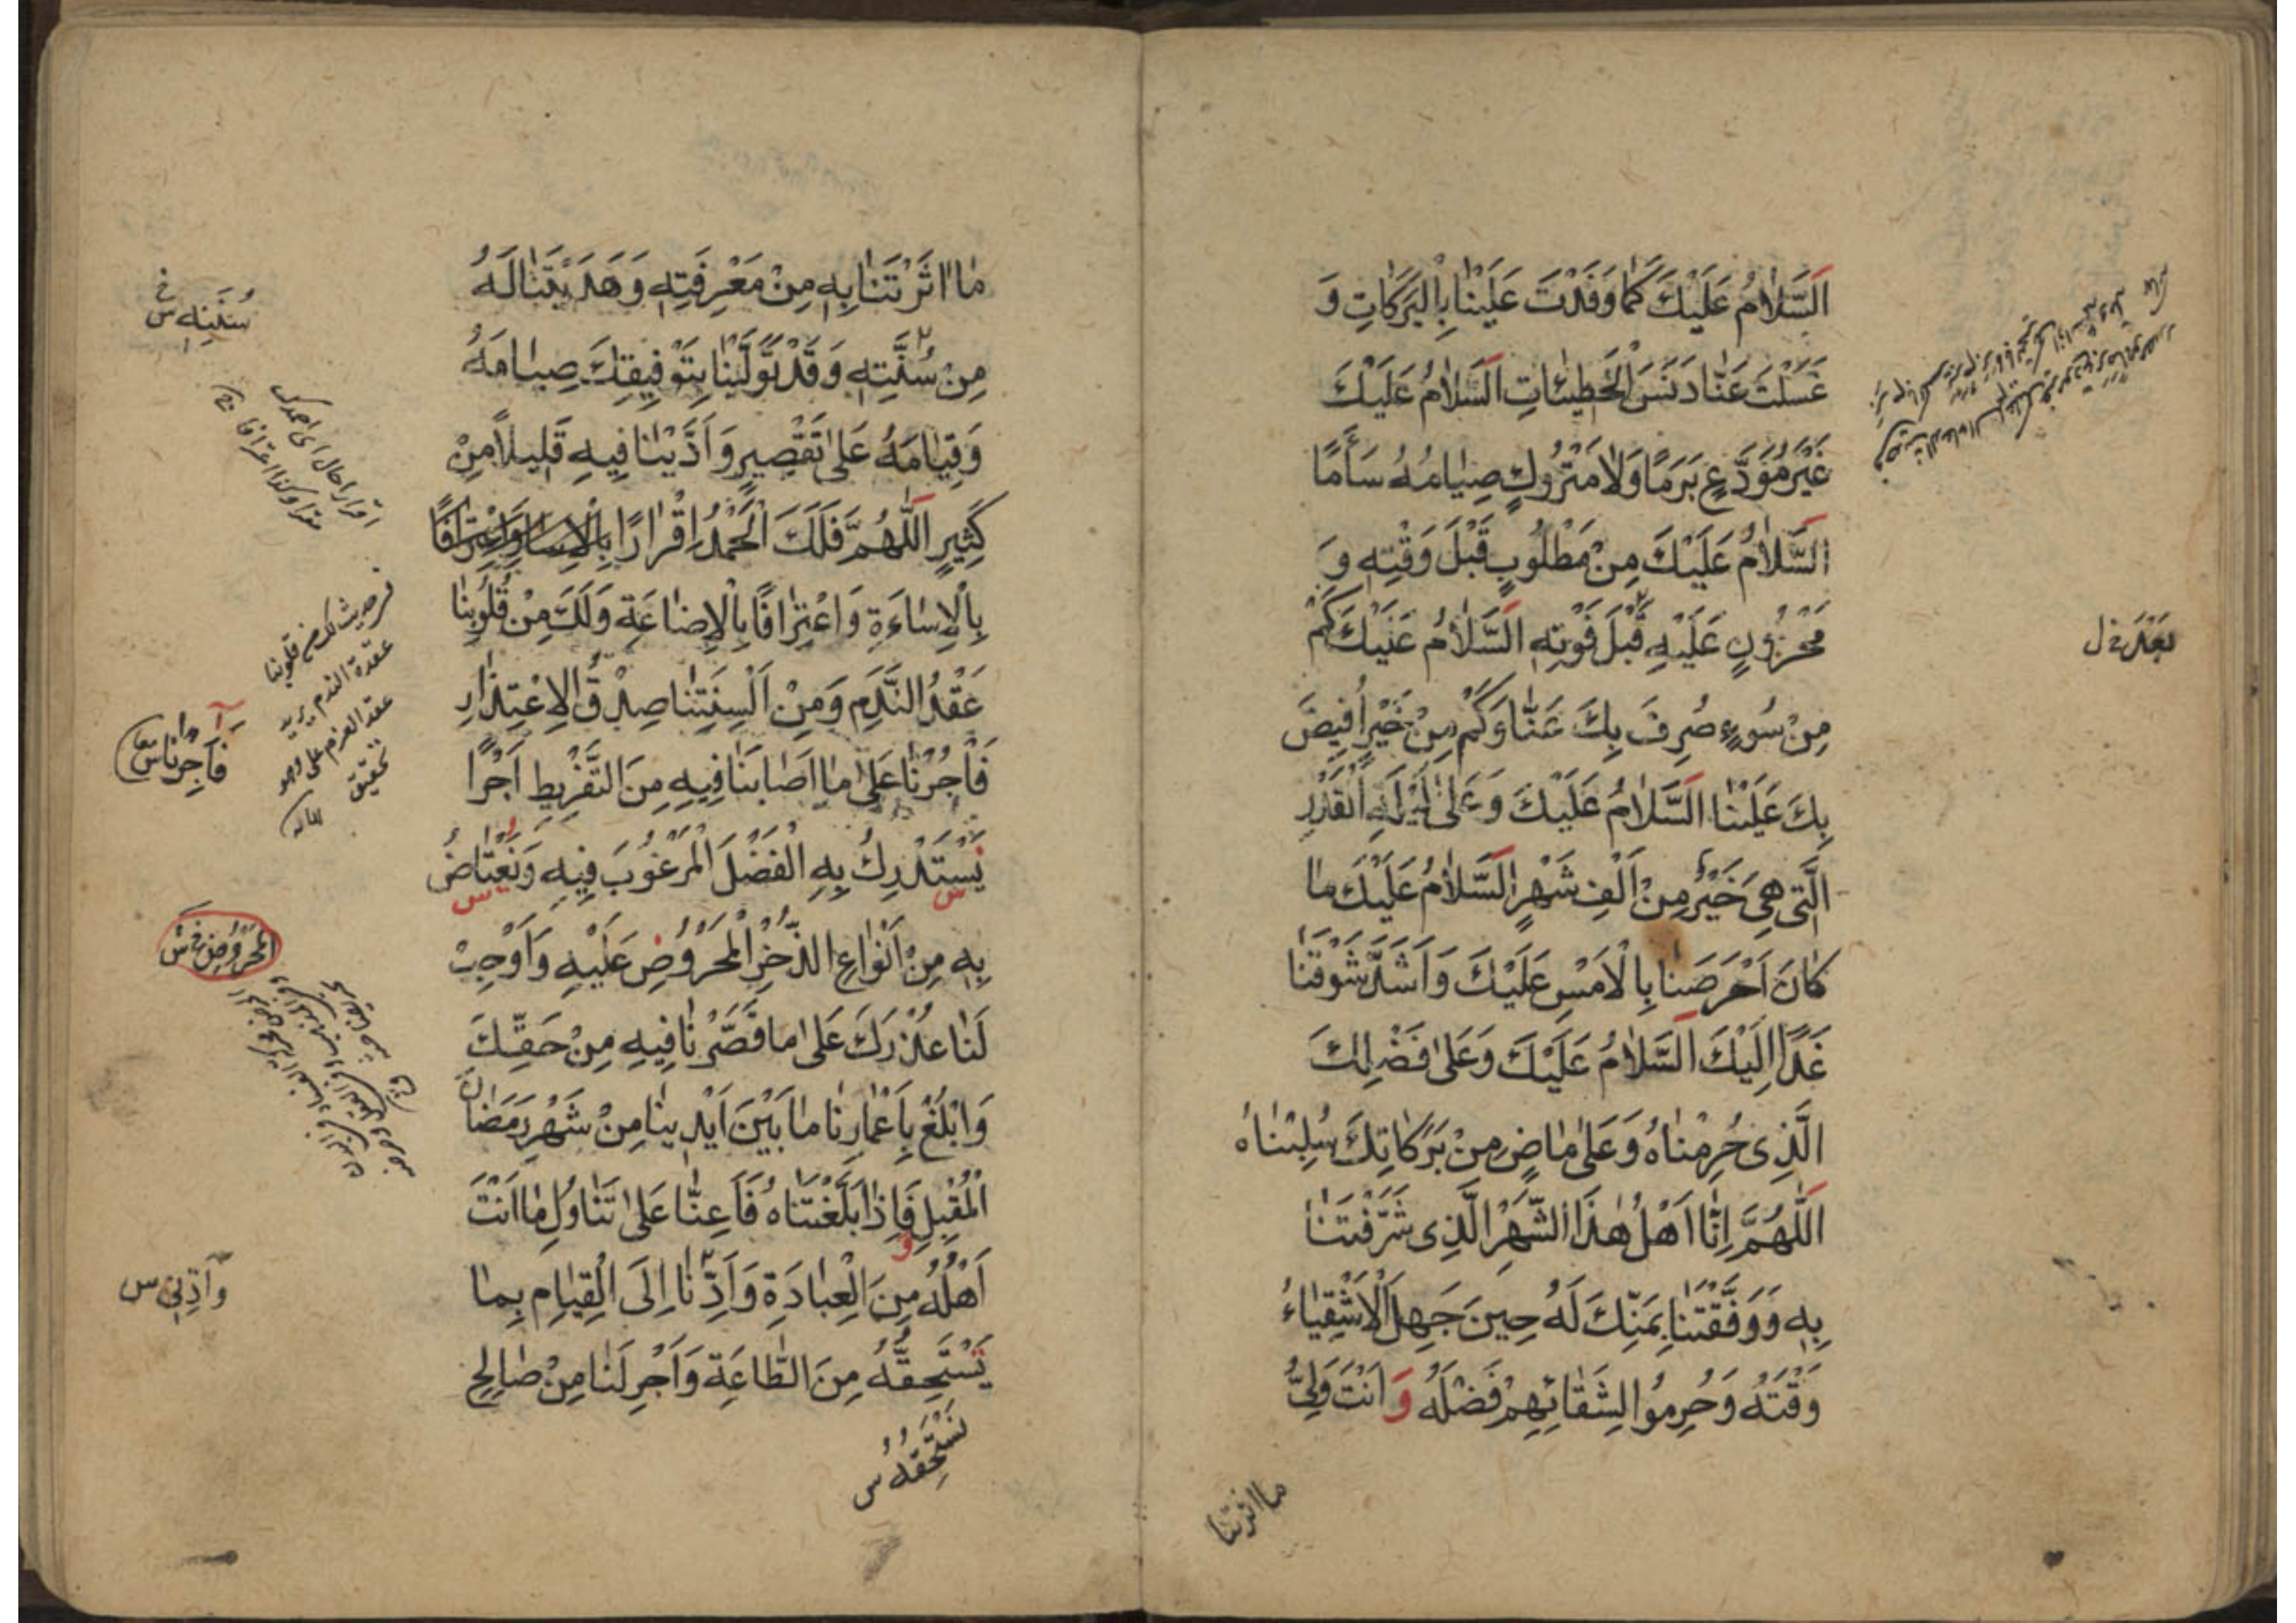 اَلسَّلَامُ عَلَيْكَ كَمَا وَفَدْتَ عَلَيْنَا بِالْبَرَكَاتِ وَ
غَسَلْتَ عَنَّا دَنَسَ الْخَطِيئَاتِ اَلسَّلَامُ عَلَيْكَ
غَيْرَ مُوَدَّعٍ بَرَمًا وَلَا مَتْرُوكٍ صِيَامُهُ سَأَمًا
اَلسَّلَامُ عَلَيْكَ مِنْ مَطْلُوبٍ قَبْلَ وَقْتِهِ وَ
مَحْزُونٍ عَلَيْهِ قَبْلَ فَوْتِهِ اَلسَّلَامُ عَلَيْكَ كَمْ
مِنْ سُوءٍ صُرِفَ بِكَ عَنَّا وَكَمْ مِنْ خَيْرٍ أُفِيضَ
بِكَ عَلَيْنَا اَلسَّلَامُ عَلَيْكَ وَعَلَى لَيْلَةِ الْقَدْرِ
الَّتِي هِيَ خَيْرٌ مِنْ اَلْفِ شَهْرٍ اَلسَّلَامُ عَلَيْكَ مَا
كَانَ اَحْرَصَنَا بِالْاَمْسِ عَلَيْكَ وَاَشَدَّ شَوْقَنَا
غَدًا اِلَيْكَ اَلسَّلَامُ عَلَيْكَ وَعَلَى فَضْلِكَ
الَّذِي حُرِمْنَاهُ وَعَلَى مَاضٍ مِنْ بَرَكَاتِكَ سُلِبْنَاهُ
اَللّٰهُمَّ اِنَّا اَهْلُ هٰذَا الشَّهْرِ الَّذِي شَرَّفْتَنَا
بِهِ وَوَفَّقْتَنَا بِمَنِّكَ لَهُ حِينَ جَهِلَ الْاَشْقِيَاءُ
وَقْتَهُ وَحُرِمُوا لِشَقَائِهِمْ فَضْلَهُ وَ اَنْتَ وَلِيُّ
ما اثرتنا
مَا اٰثَرْتَنَا بِهِ مِنْ مَعْرِفَتِهِ وَهَدَيْتَنَا لَهُ
مِنْ سُنَّتِهِ وَقَدْ تَوَلَّيْنَا بِتَوْفِيقِكَ صِيَامَهُ
وَقِيَامَهُ عَلَى تَقْصِيرٍ وَاَدَّيْنَا فِيهِ قَلِيلًا مِنْ
كَثِيرٍ اَللّٰهُمَّ فَلَكَ الْحَمْدُ اِقْرَارًا بِالْاِسَا وَاعْتِرَافًا
بِالْاِسَاءَةِ وَاعْتِرَافًا بِالْاِضَاعَةِ وَلَكَ مِنْ قُلُوبِنَا
عَقْدُ النَّدَمِ وَمِنْ اَلْسِنَتِنَا صِدْقُ الْاِعْتِذَارِ
فَاْجُرْنَا عَلَى مَا اَصَابَنَا فِيهِ مِنَ التَّفْرِيطِ اَجْرًا
نَسْتَدْرِكُ بِهِ الْفَضْلَ الْمَرْغُوبَ فِيهِ وَنَعْتَاضُ
بِهِ مِنْ اَنْوَاعِ الذُّخْرِ الْمَحْرُوصِ عَلَيْهِ وَاَوْجِبْ
لَنَا عُذْرَكَ عَلَى مَا قَصَّرْنَا فِيهِ مِنْ حَقِّكَ
وَابْلُغْ بِاَعْمَارِنَا مَا بَيْنَ اَيْدِينَا مِنْ شَهْرِ رَمَضَانَ
الْمُقْبِلِ فَاِذَا بَلَّغْتَنَاهُ فَاَعِنَّا عَلَى تَنَاوُلِ مَا اَنْتَ
اَهْلُهُ مِنَ الْعِبَادَةِ وَاَدِّنَا اِلَى الْقِيَامِ بِمَا
يَسْتَحِقُّهُ مِنَ الطَّاعَةِ وَاَجْرِ لَنَا مِنْ صَالِحِ
نَسْتَحِقُّهُ س
سُنَنِهِ س
اقرارا حال اى احمدك
مقرا وكذا اعترافا
لك من قلوبنا
عقدة الندم يريد
عقد العزم على وجه
تحقيق
فَآجِرْنَا س